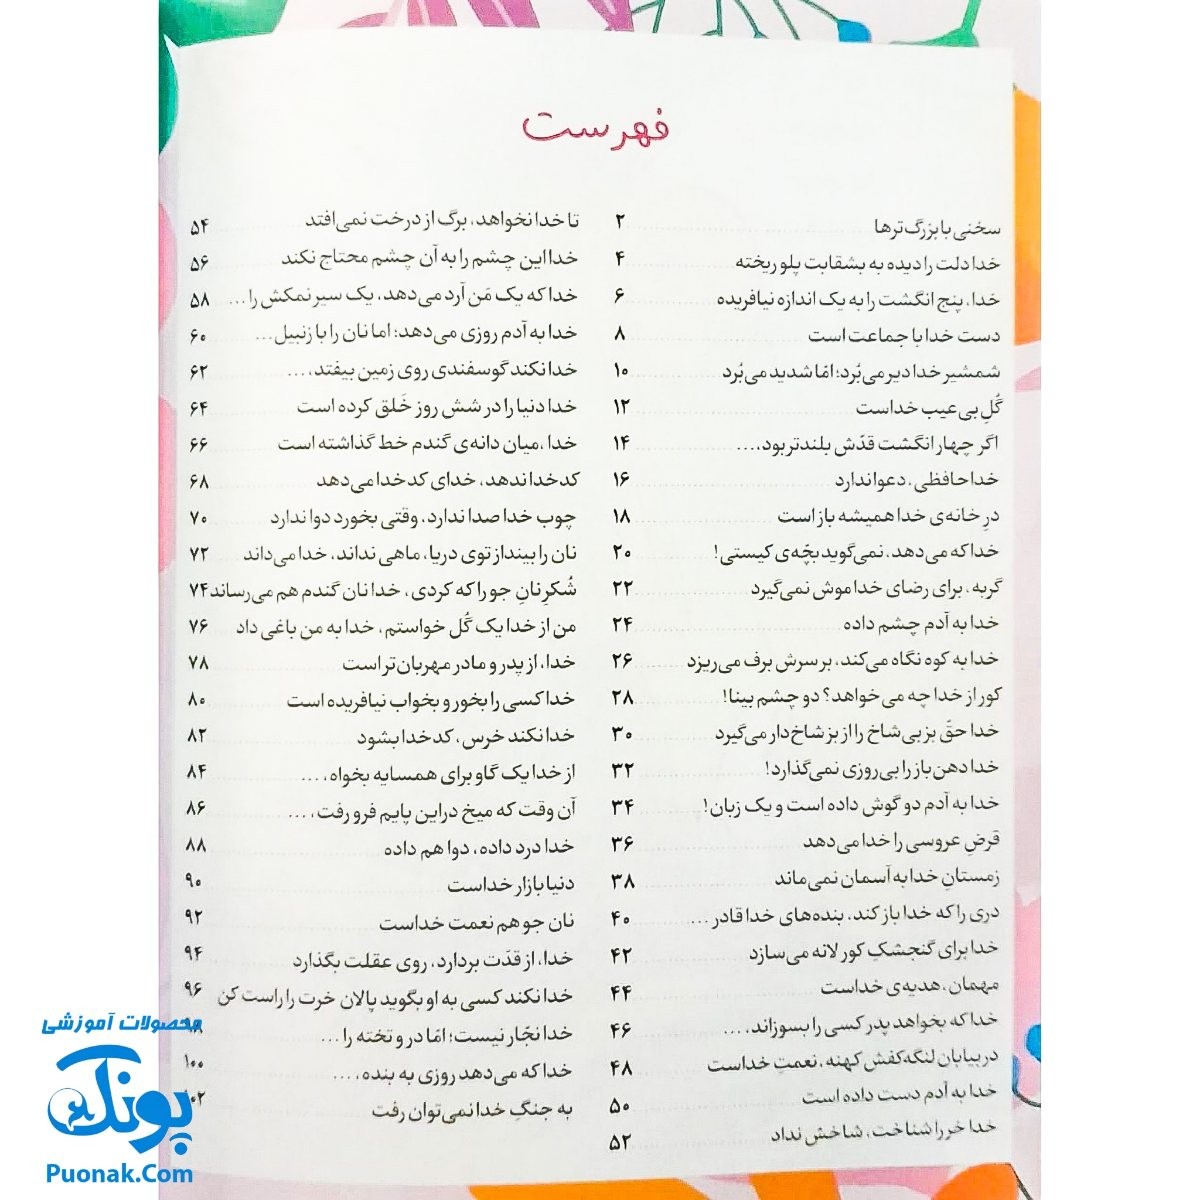 فهرست
سخنی با بزرگ‌ترها ۲
خدا دلت را دیده به بشقابت پلو ریخته ۴
خدا، پنج انگشت را به یک اندازه نیافریده ۶
دست خدا با جماعت است ۸
شمشیر خدا دیر می‌بُرد؛ امّا شدید می‌بُرد ۱۰
گُلِ بی‌عیب خداست ۱۲
اگر چهار انگشت قدّش بلندتر بود،... ۱۴
خداحافظی، دعوا ندارد ۱۶
درِ خانه‌ی خدا همیشه باز است ۱۸
خدا که می‌دهد، نمی‌گوید بچّه‌ی کیستی! ۲۰
گربه، برای رضای خدا موش نمی‌گیرد ۲۲
خدا به آدم چشم داده ۲۴
خدا به کوه نگاه می‌کند، بر سرش برف می‌ریزد ۲۶
کور از خدا چه می‌خواهد؟ دو چشم بینا! ۲۸
خدا حقّ بز بی‌شاخ را از بز شاخ‌دار می‌گیرد ۳۰
خدا دهن باز را بی‌روزی نمی‌گذارد! ۳۲
خدا به آدم دو گوش داده است و یک زبان! ۳۴
قرضِ عروسی را خدا می‌دهد ۳۶
زمستانِ خدا به آسمان نمی‌ماند ۳۸
دری را که خدا باز کند، بنده‌های خدا قادر ... ۴۰
خدا برای گنجشکِ کور لانه می‌سازد ۴۲
مهمان، هدیه‌ی خداست ۴۴
خدا که بخواهد پدر کسی را بسوزاند،... ۴۶
در بیابان لنگه کفش کهنه، نعمتِ خداست ۴۸
خدا به آدم دست داده است ۵۰
خدا خر را شناخت، شاخش نداد ۵۲
تا خدا نخواهد، برگ از درخت نمی‌افتد ۵۴
خدا این چشم را به آن چشم محتاج نکند ۵۶
خدا که یک مَن آرد می‌دهد، یک سیر نمکش را ... ۵۸
خدا به آدم روزی می‌دهد؛ اما نان را با زنبیل... ۶۰
خدا نکند گوسفندی روی زمین بیفتد،... ۶۲
خدا دنیا را در شش روز خَلق کرده است ۶۴
خدا، میان دانه‌ی گندم خط گذاشته است ۶۶
کدخدا ندهد، خدای کدخدا می‌دهد ۶۸
چوب خدا صدا ندارد، وقتی بخورد دوا ندارد ۷۰
نان را بینداز توی دریا، ماهی نداند، خدا می‌داند ۷۲
شُکرِ نانِ جو را که کردی، خدا نان گندم هم می‌رساند ۷۴
من از خدا یک گُل خواستم، خدا به من باغی داد ۷۶
خدا، از پدر و مادر مهربان‌تر است ۷۸
خدا کسی را بخور و بخواب نیافریده است ۸۰
خدا نکند خرس، کدخدا بشود ۸۲
از خدا یک گاو برای همسایه بخواه،... ۸۴
آن وقت که میخ در این پایم فرو رفت،... ۸۶
خدا درد داده، دوا هم داده ۸۸
دنیا بازار خداست ۹۰
نان جو هم نعمت خداست ۹۲
خدا، از قدّت بردارد، روی عقلت بگذارد ۹۴
خدا نکند کسی به او بگوید پالان خرت را راست کن ۹۶
خدا نجّار نیست؛ امّا در و تخته را ... ۹۸
خدا که می‌دهد روزی به بنده،... ۱۰۰
به جنگِ خدا نمی‌توان رفت ۱۰۲
محصولات آموزشی
پونک
Puonak.Com